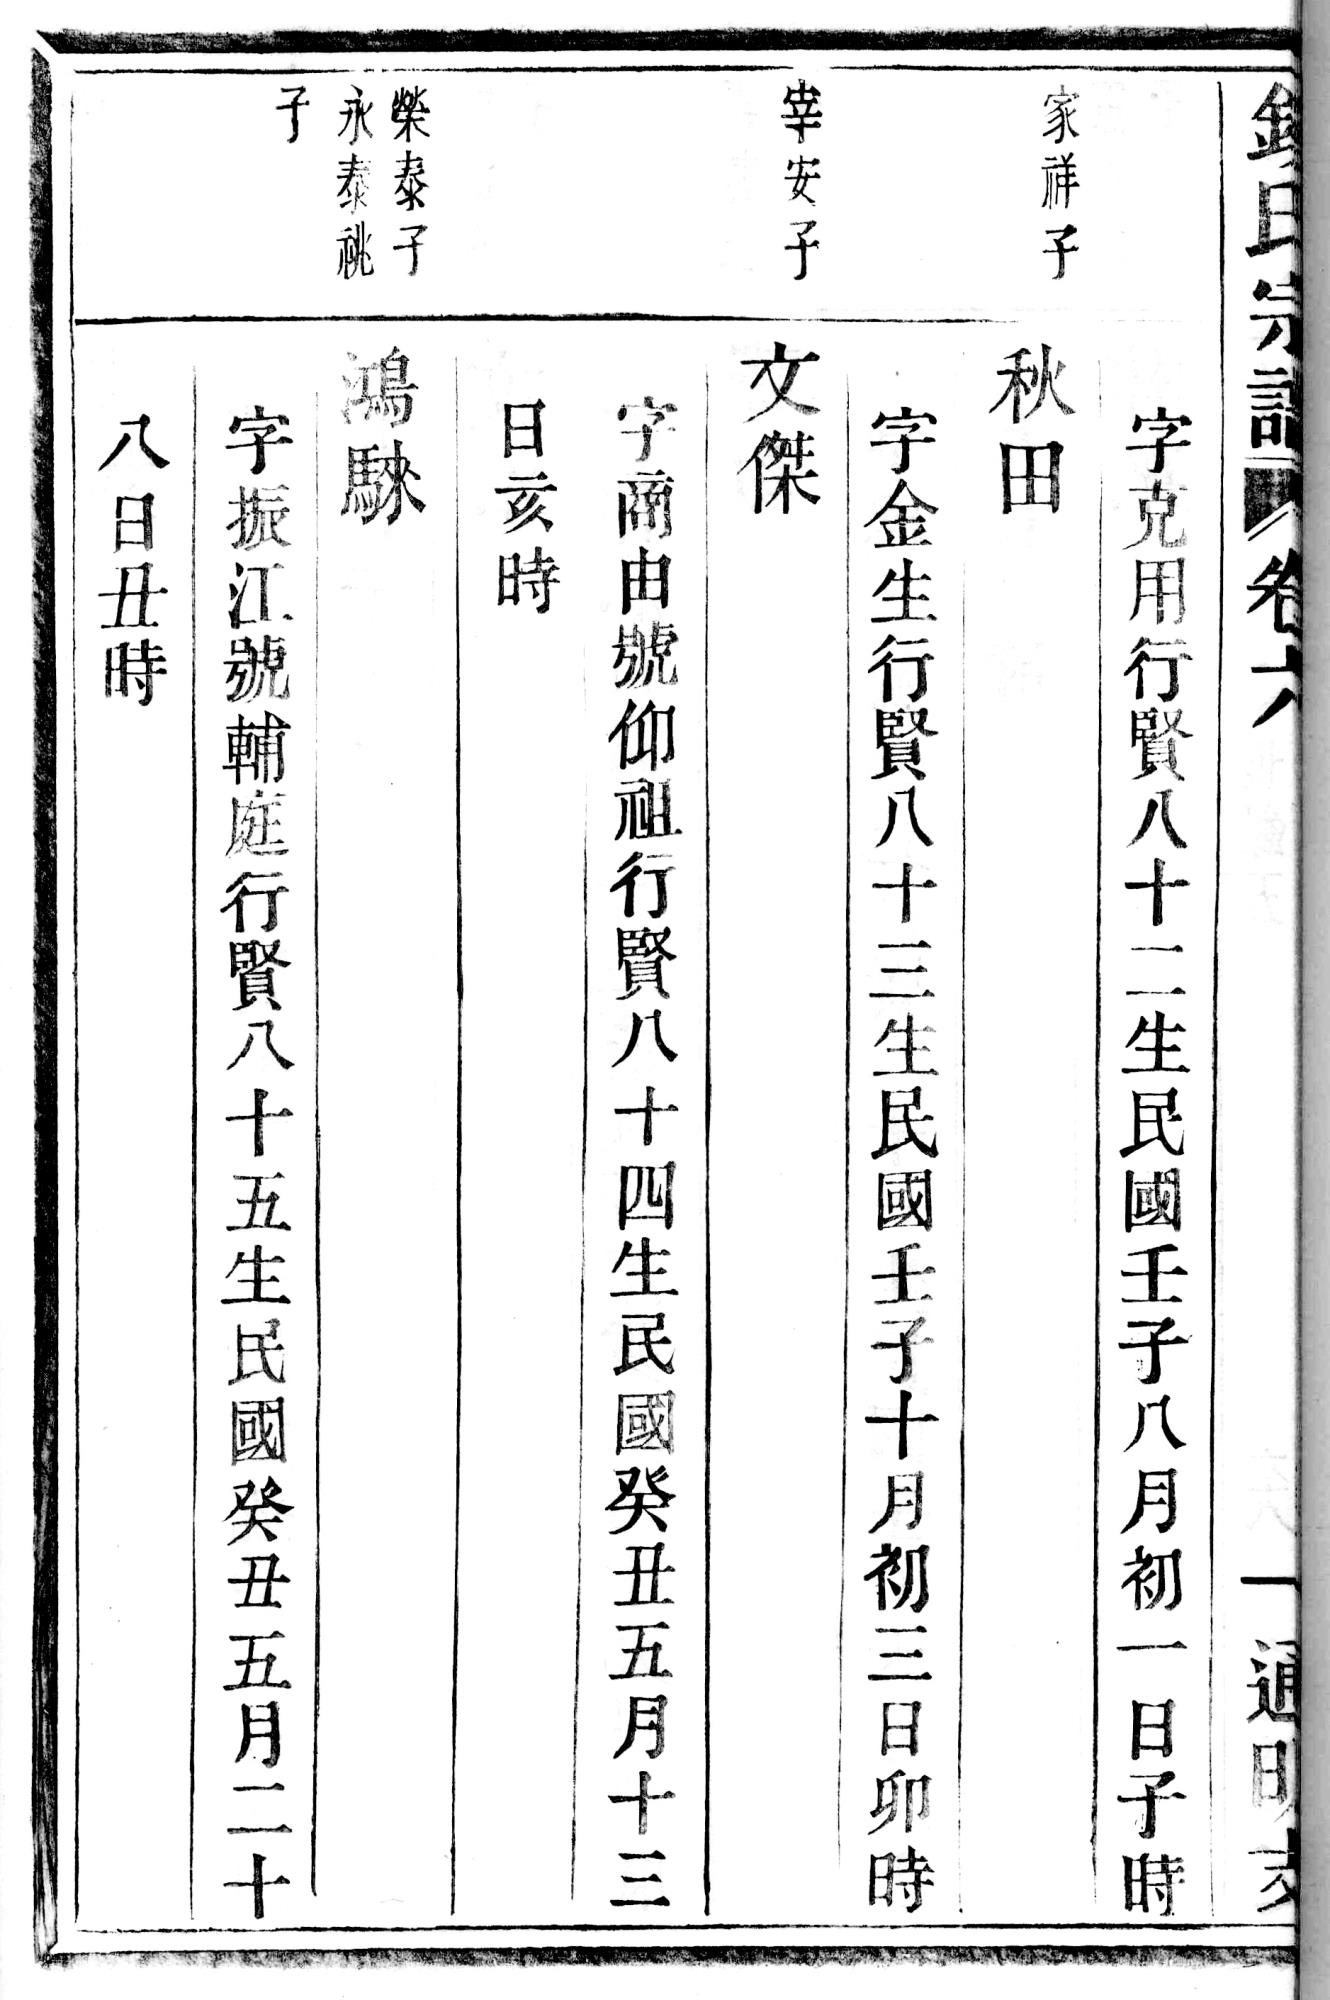 氏宗譜 卷六 一 通明支
字克用行賢八十二生民國壬子八月初一日子時
家祥子
秋田
字金生行賢八十三生民國壬子十月初三日卯時
宰安子
文傑
字商由號仰祖行賢八十四生民國癸丑五月十三
日亥時
榮泰子
永泰祧
子
鴻騋
字振江號輔庭行賢八十五生民國癸丑五月二十
八日丑時